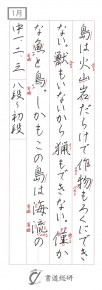 1月
島は火山岩だらけで作物もろくにでき
ない。獣もいないから猟もできない。僅か
な魚と鳥。しかもこの島は海流の
中一・二・三 八段〜初段
書道総研